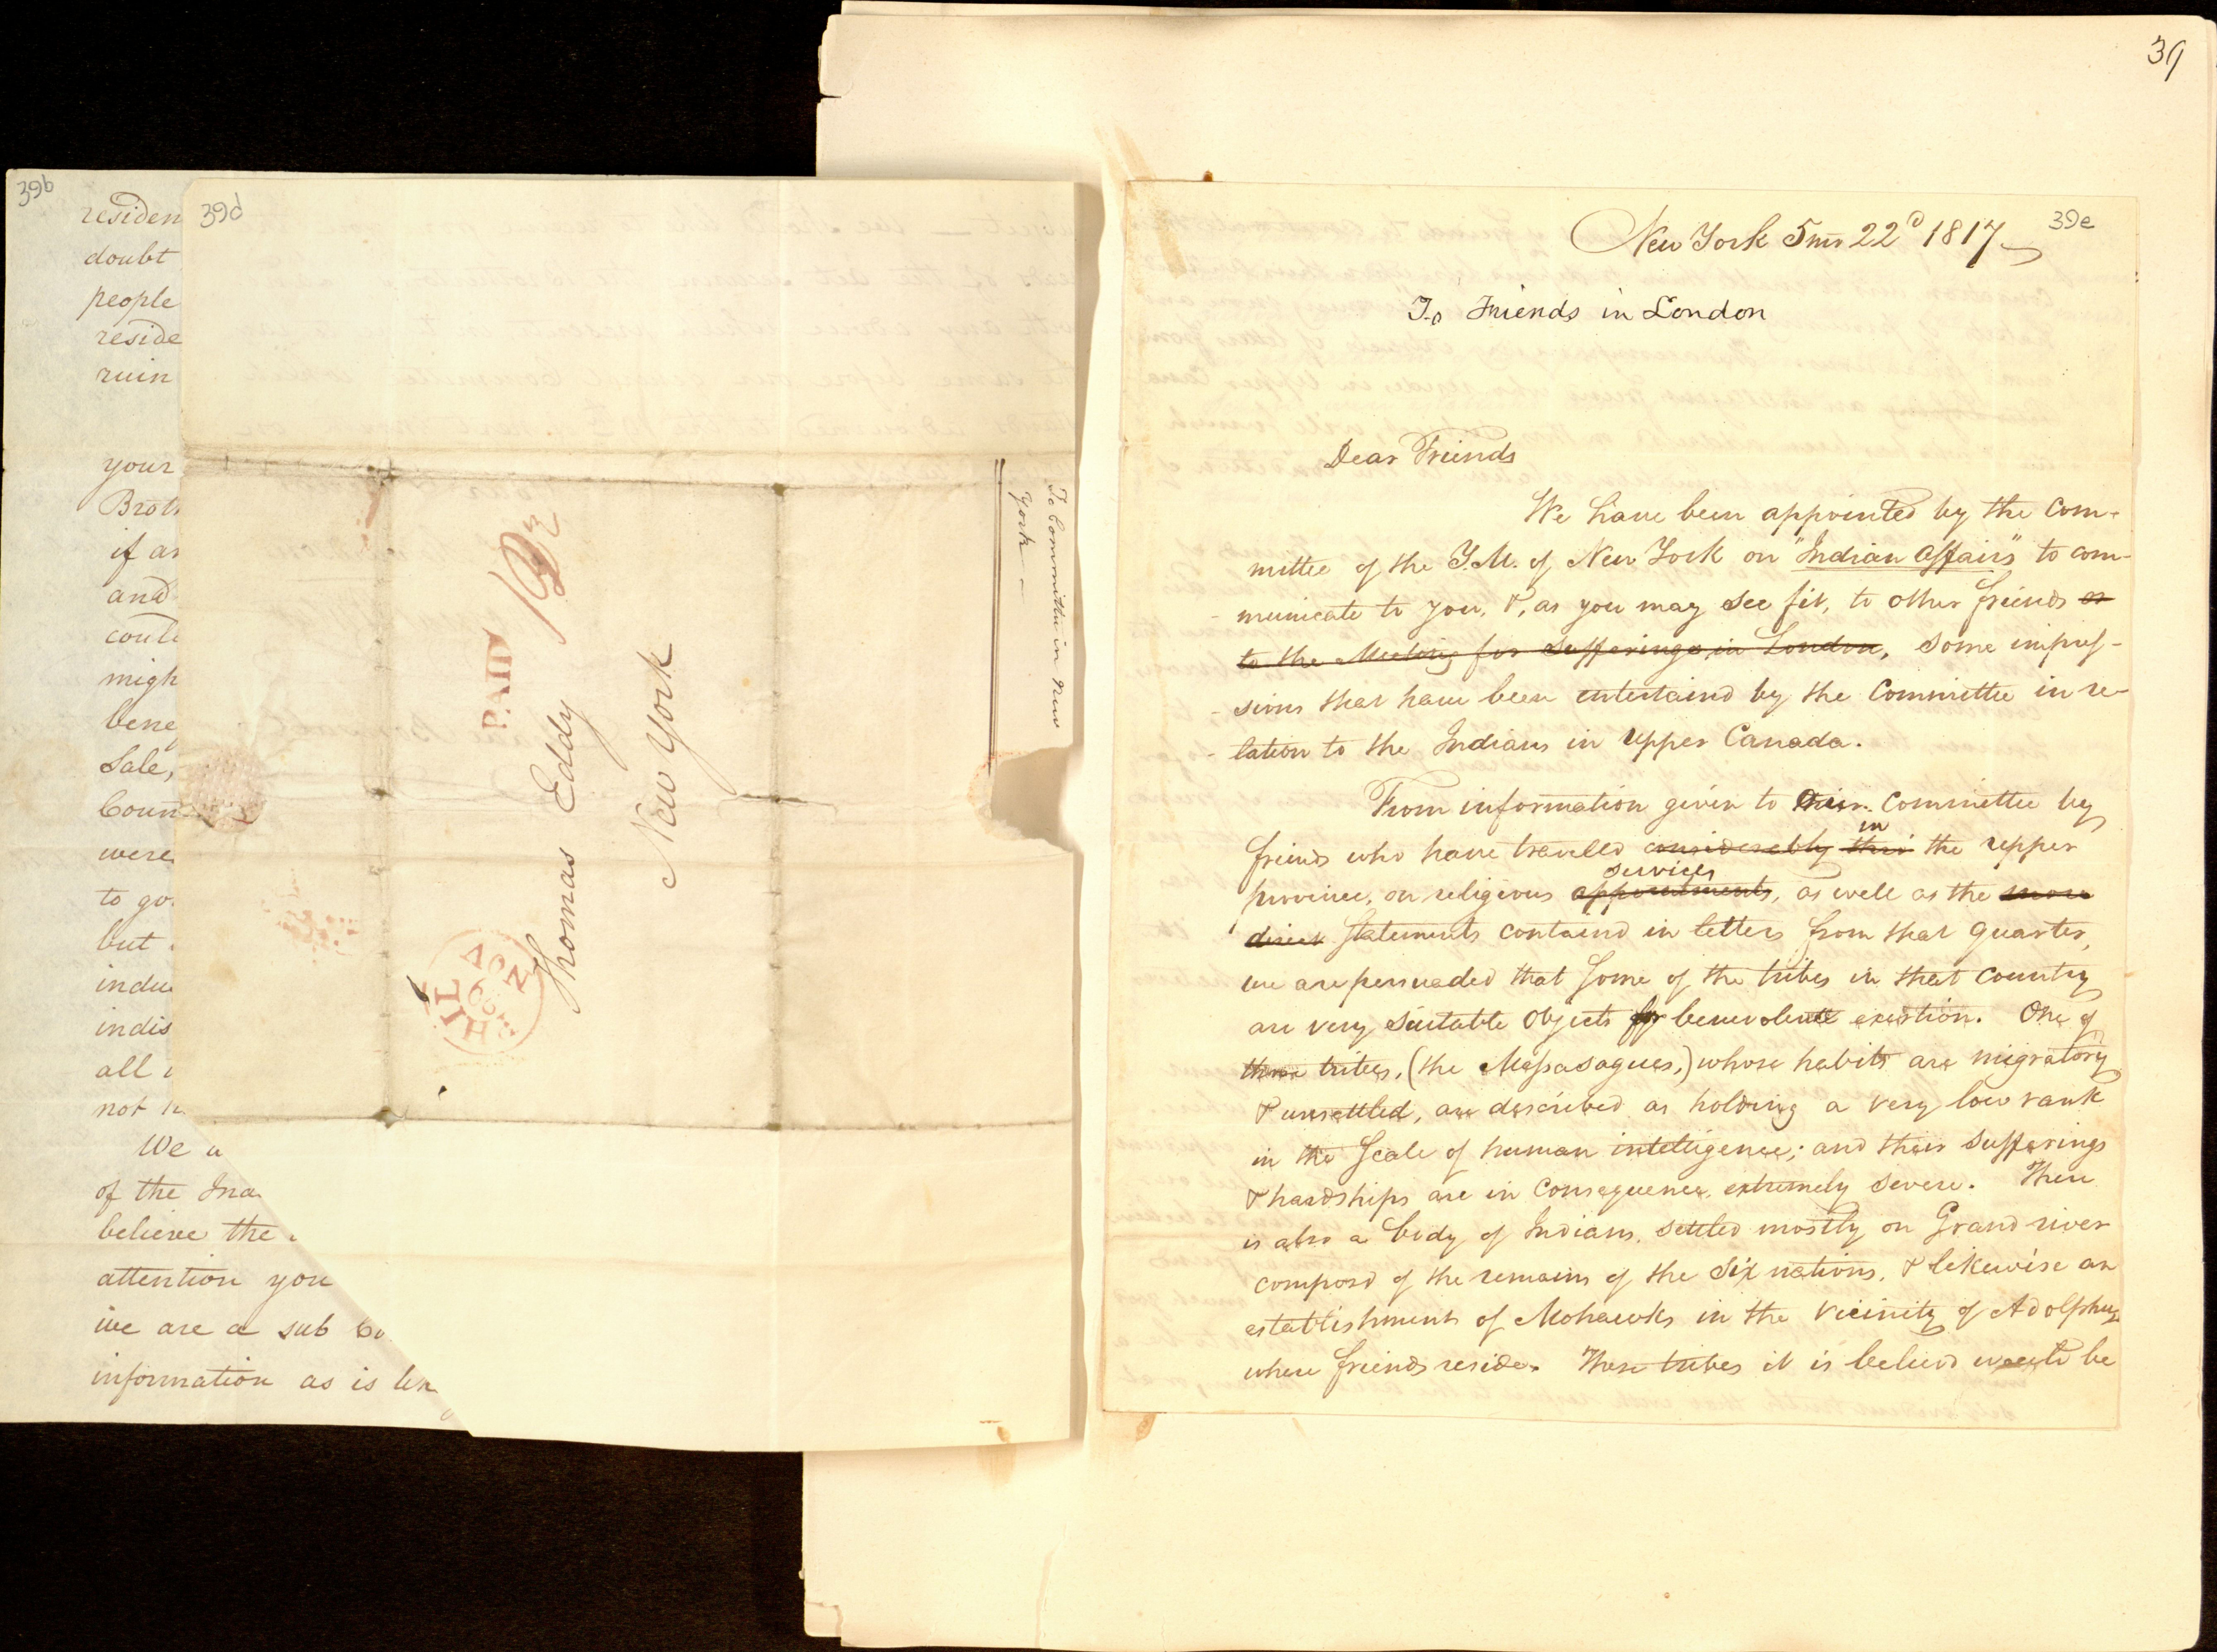 39
39b
residen
doubt
people
reside
ruin
your
Brot
if a
and
coul
migh
bene
Sale,
Coun
were
to go
but
indu
indis
all
not
We a
of the Ind
believe the
attention you
we are a sub Co
information as is lik
39d
PAID
Thomas Eddy
New York
PHIL
20
NOV
To Committee in New
York —
39e
New York 5 mo 22d 1817
To Friends in London
Dear Friends
We have been appointed by the Com-
mittee of the Y.M. of New York on "Indian Affairs" to com-
-municate to you, &, as you may see fit, to other friends or
to the Meeting for Sufferings, in London, some impres-
-sions that have been entertaind by the Committee in re-
-lation to the Indians in Upper Canada.
From information given to this Committee by
in
friends who have travelled considerably thro the upper
services
province, on religious appointments, as well as the more
direct statements containd in letters from that quarter,
we are persuaded that some of the tribes in that country
are very suitable objects for benevolent exertion. One of
these tribes, (the Massasagues,) whose habits are migratory
& unsettled, are described as holding a very low rank
in the scale of human intelligence; and their sufferings
& hardships are in consequence, extremely severe. There
is also a body of Indians, settled mostly on Grand river
composd of the remains of the Six nations, & likewise an
establishment of Mohawks in the vicinity of Adolphus
where friends reside. These tribes it is believd would be